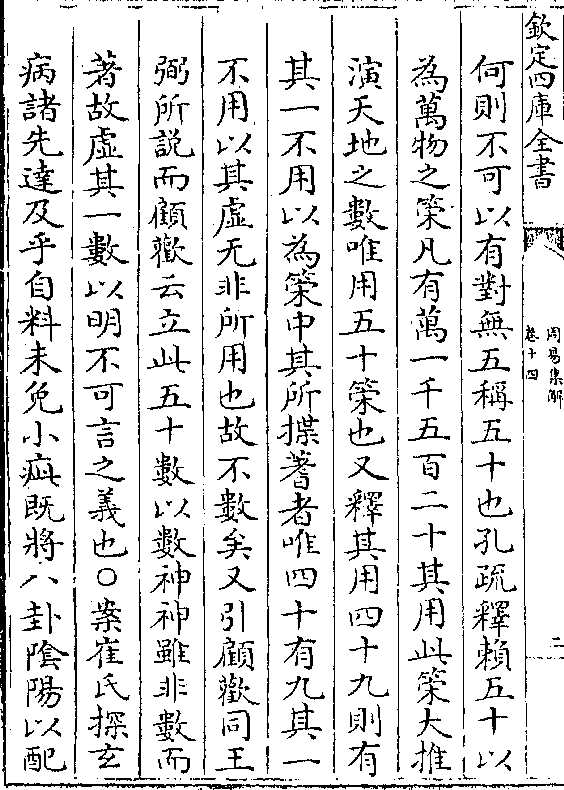 欽定四庫全書
周易集解
卷十四
二
何則不可以有對無五稱五十也孔疏釋賴五十以
為萬物之䇿凡有萬一千五百二十其用此䇿大推
演天地之數唯用五十䇿也又釋其用四十九則有
其一不用以為䇿中其所揲蓍者唯四十有九其一
不用以其虛无非所用也故不數矣又引顧歡同王
弼所説而顧歡云立此五十數以數神神雖非數而
著故虛其一數以明不可言之義也○案崔氏探𤣥
病諸先達及乎自料未免小疵既將八卦隂陽以配